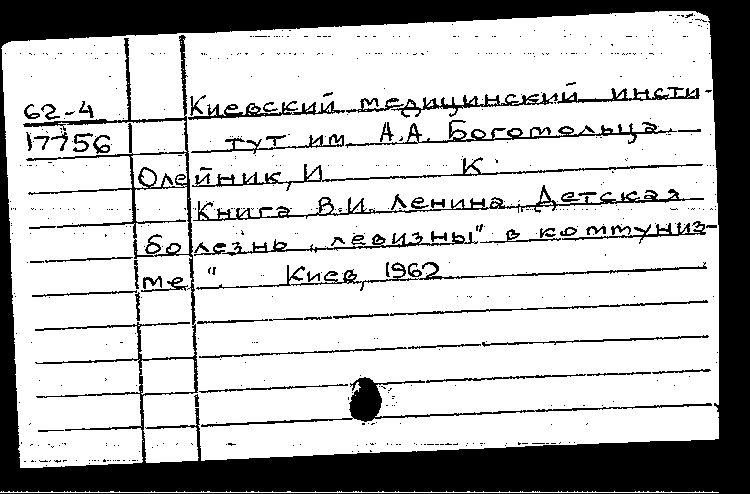 62-4
17756
Киевский медицинский инсти-
тут им. А.А. Богомольца
Олейник, И К.
Книга В.И. Ленина „Детская
болезнь „левизны" в коммуниз-
ме". Киев, 1962